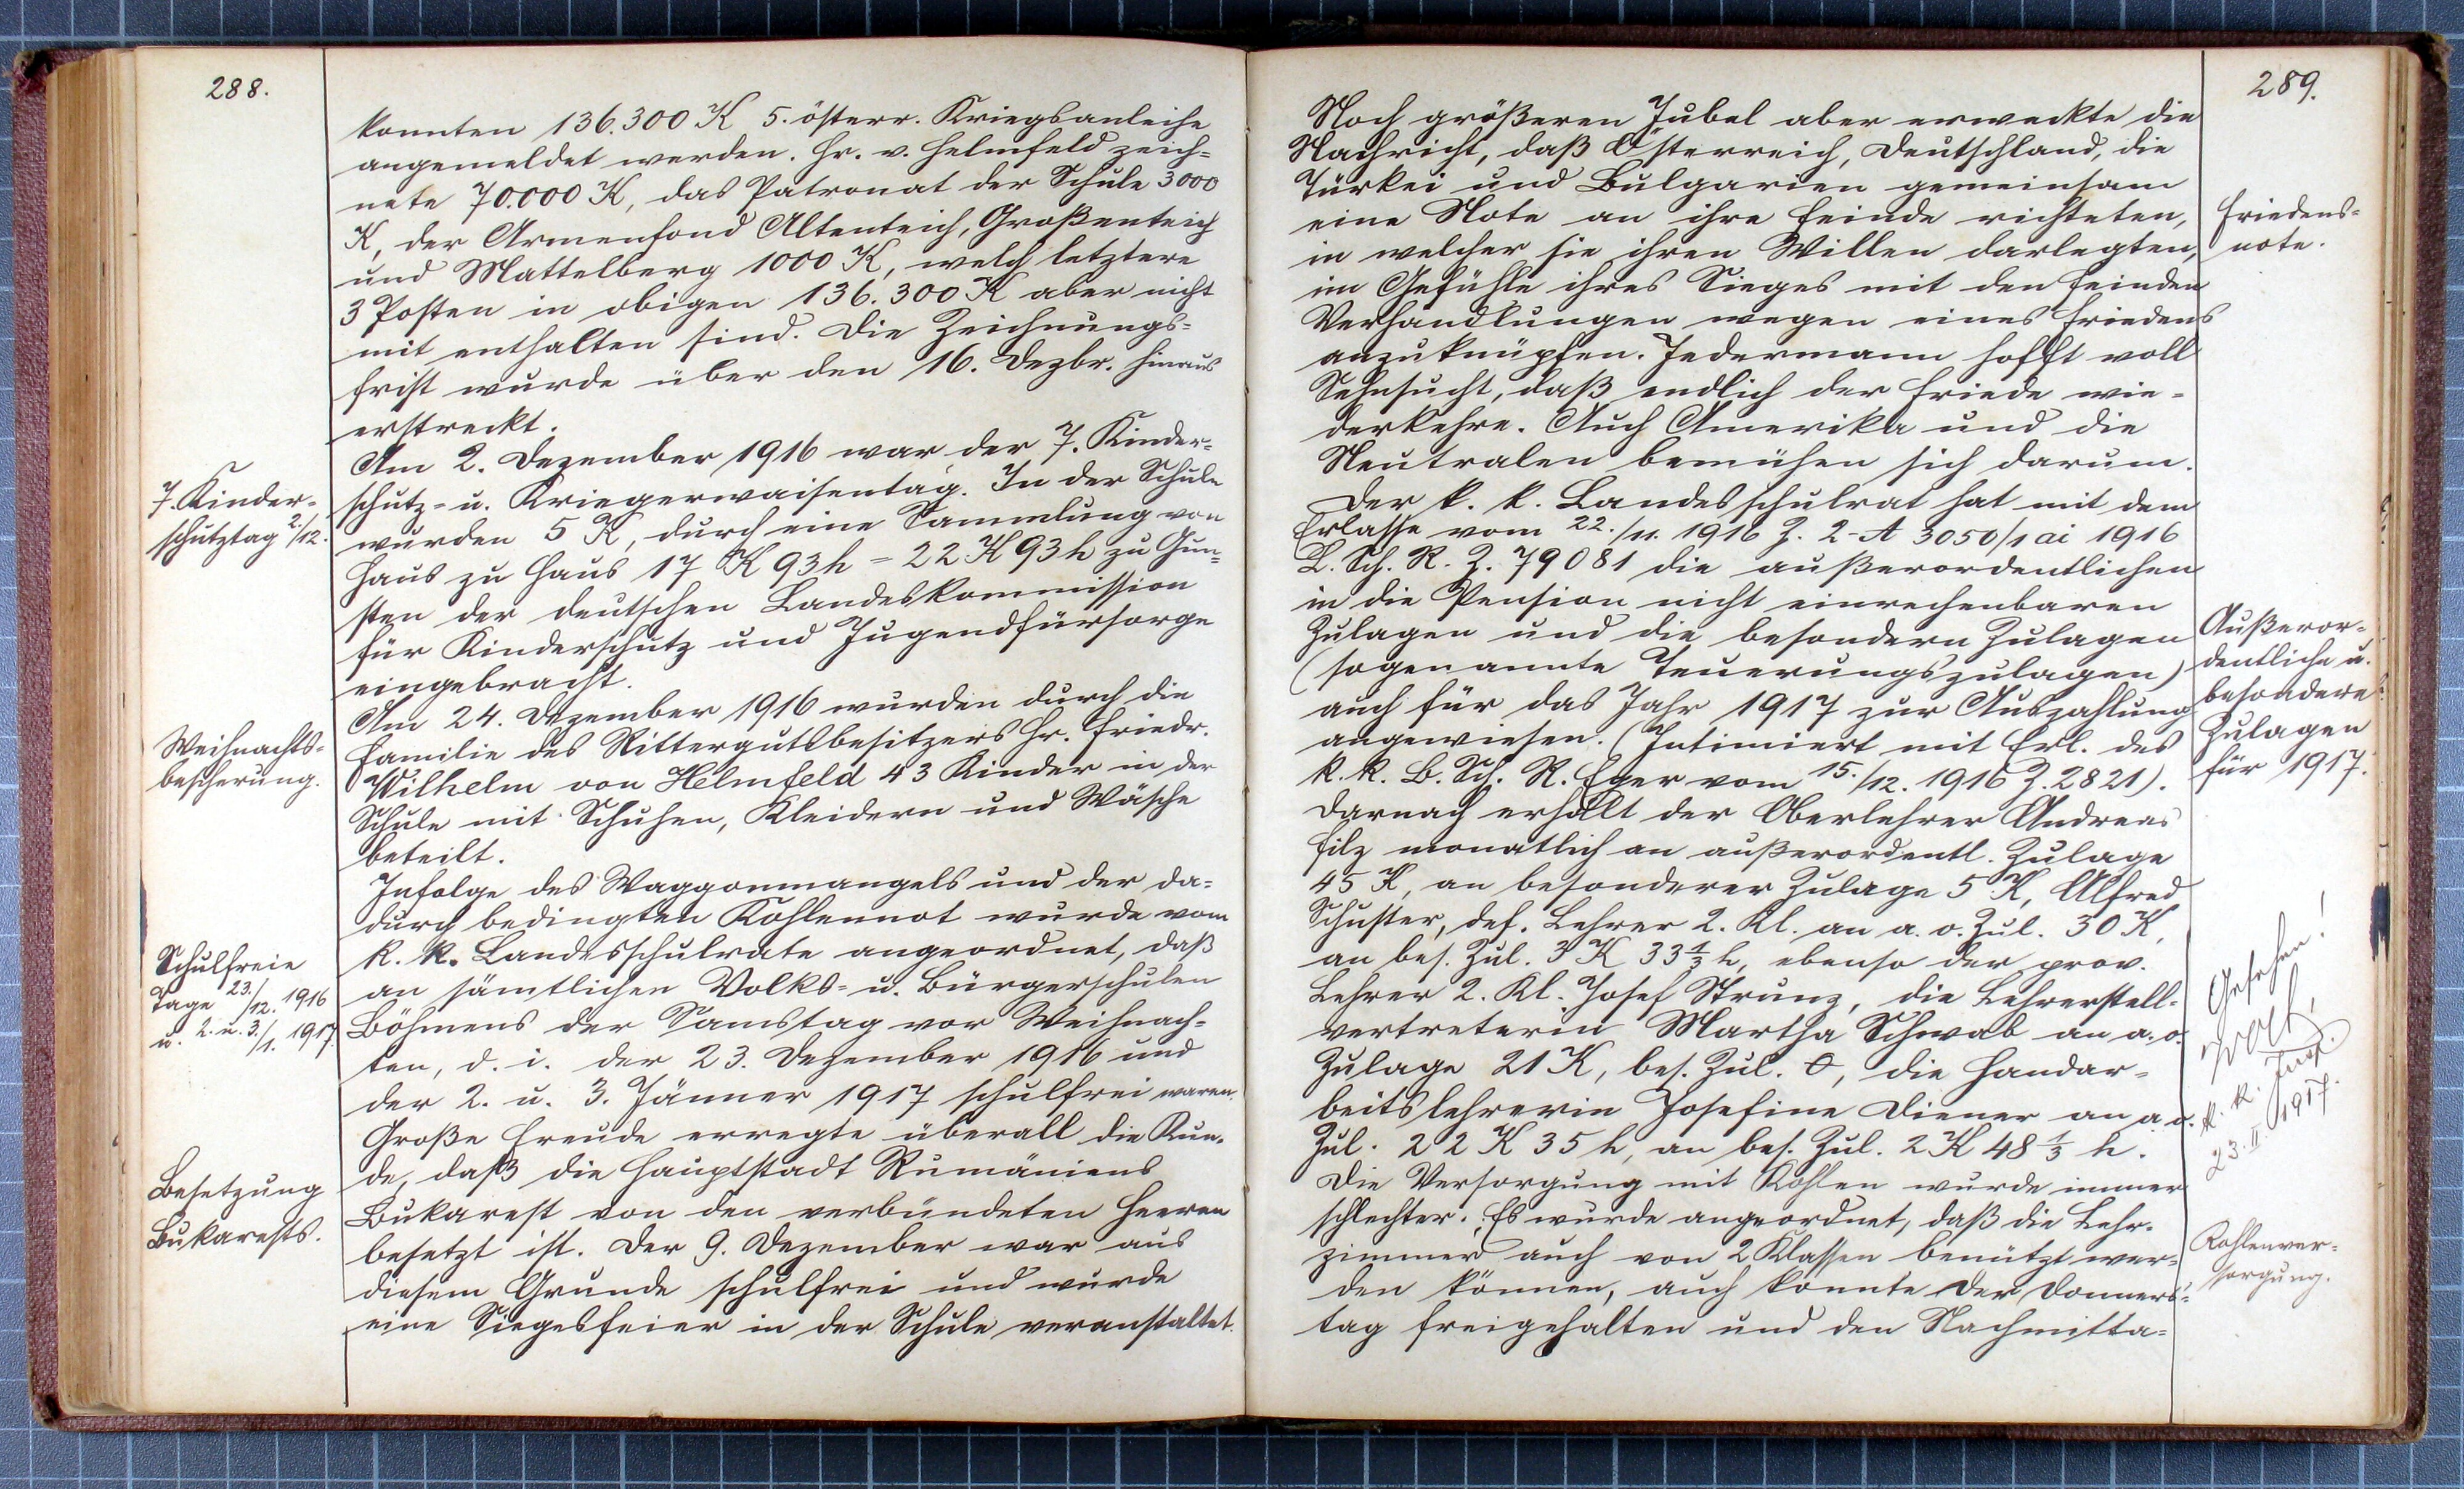 288.
konnten 136.300 K 5. österr. Kriegsanleihe
angemeldet werden. Hr. v. Helmfeld zeich-
nete 70.000 K, das Patronat der Schule 3000
K, der Armenfond Altenteich, Großenteich
und Mattelberg 1000 K, welch letztere
3 Posten in obigen 136.300 K aber nicht
mit enthalten sind. Die Zeichnungs-
frist wurde über den 16. Dezbr. hinaus
erstreckt.
7. Kinder-
schutztag 2./12.
Am 2. Dezember 1916 war der 7. Kinder-
schutz- u. Kriegerwaisentag. In der Schule
wurden 5 K, durch eine Sammlung von
Haus zu Haus 17 K 93 h = 22 K 93 h zu Gun-
sten der deutschen Landeskommission
für Kinderschutz und Jugendfürsorge
eingebracht.
Weihnachts-
bescherung.
Am 24. Dezember 1916 wurden durch die
Familie des Rittergutsbesitzers Hr. Friedr.
Wilhelm von Helmfeld 43 Kinder in der
Schule mit Schuhen, Kleidern und Wäsche
beteilt.
Schulfreie
Tage 23./12. 1916
u. 2. u. 3./1. 1917.
Infolge des Waggonmangels und der da-
durch bedingten Kohlennot wurde vom
k. k. Landesschulrate angeordnet, daß
an sämtlichen Volks- u. Bürgerschulen
Böhmens der Samstag vor Weihnach-
ten, d. i. der 23. Dezember 1916 und
der 2. u. 3. Jänner 1917 schulfrei waren.
Besetzung
Bukarests.
Große Freude erregte überall die Kun-
de, daß die Hauptstadt Rumäniens
Bukarest von den verbündeten Heeren
besetzt ist. Der 9. Dezember war aus
diesem Grunde schulfrei und wurde
eine Siegesfeier in der Schule veranstaltet.
289.
Noch größeren Jubel aber erweckte die
Nachricht, daß Österreich, Deutschland, die
Türkei und Bulgarien gemeinsam
eine Note an ihre Feinde richteten,
in welcher sie ihren Willen darlegten,
im Gefühle ihres Sieges mit den Feinden
Verhandlungen wegen eines Friedens
anzuknüpfen. Jedermann hofft voll
Sehnsucht, daß endlich der Friede wie-
derkehre. Auch Amerika und die
Neutralen bemühen sich darum.
Friedens-
note.
Der k. k. Landesschulrat hat mit dem
Erlasse vom 22./11. 1916 Z. 2-A 3050/1 ai 1916
L. Sch. R. Z. 79081 die außerordentlichen
in die Pension nicht einrechenbaren
Zulagen und die besondern Zulagen
(sogenannte Teuerungszulagen)
auch für das Jahr 1917 zur Auszahlung
angewiesen. (Intimiert mit Erl. des
k. k. B. Sch. R. Eger vom 15./12. 1916 Z. 2821).
Darnach erhält der Oberlehrer Andreas
Filz monatlich an außerordentl. Zulage
45 K, an besonderer Zulage 5 K, Alfred
Schuster, def. Lehrer 2. Kl. an a. o. Zul. 30 K,
an bes. Zul. 3 K 33 1/3 h, ebenso der prov.
Lehrer 2. Kl. Josef Strunz, die Lehrerstell-
vertreterin Martha Schwab an a. o.
Zulage 21 K, bes. Zul. 0, die Handar-
beitslehrerin Josefine Diener an a. o.
Zul. 22 K 35 h, an bes. Zul. 2 K 48 1/3 h.
Außeror-
dentliche u.
besondere
Zulagen
für 1917.
Gesehen!
k. k. Insp.
23. II. 1917.
Die Versorgung mit Kohlen wurde immer
schlechter. Es wurde angeordnet, daß die Lehr-
zimmer auch von 2 Klassen benützt wer-
den können, auch konnte der Donners-
tag freigehalten und den Nachmitta-
Kohlenver-
sorgung.